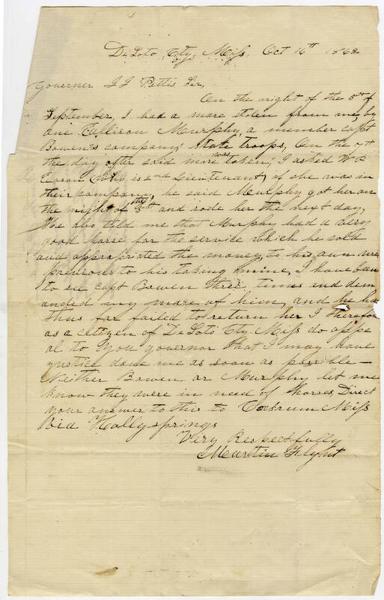 DeSoto City, Miss, Oct 16th 1862
Governer J J Pettis Sir,
On the night of the 8th of
September, I had a mare stolen from me, by
one Murphy, a member Capt
Bowen's company, State troops, On the 9th
the day after said mare was taken, I asked Wm
he is 2nd Lieutenant, if she was in
their company, he said Murphy got her on
the night of the 8th and rode her the next day,
He also told me that Murphy had a very
good horse for the service which he sold
and appropriated the money, to his own use
previous to his taking mine, I have been
to see Capt Bowen three, times and dem
anded my mare of him, and he has
thus far failed to return her I therefore
as a citizen of DeSoto Cty Miss do appe
al to you governor that I may have
justice done me as soon as possible
Neither Bowen or Murphy let me
know they were in need of horses, Direct
your answer to this to Miss
Via Hollysprings
Very Respectfully
Martin